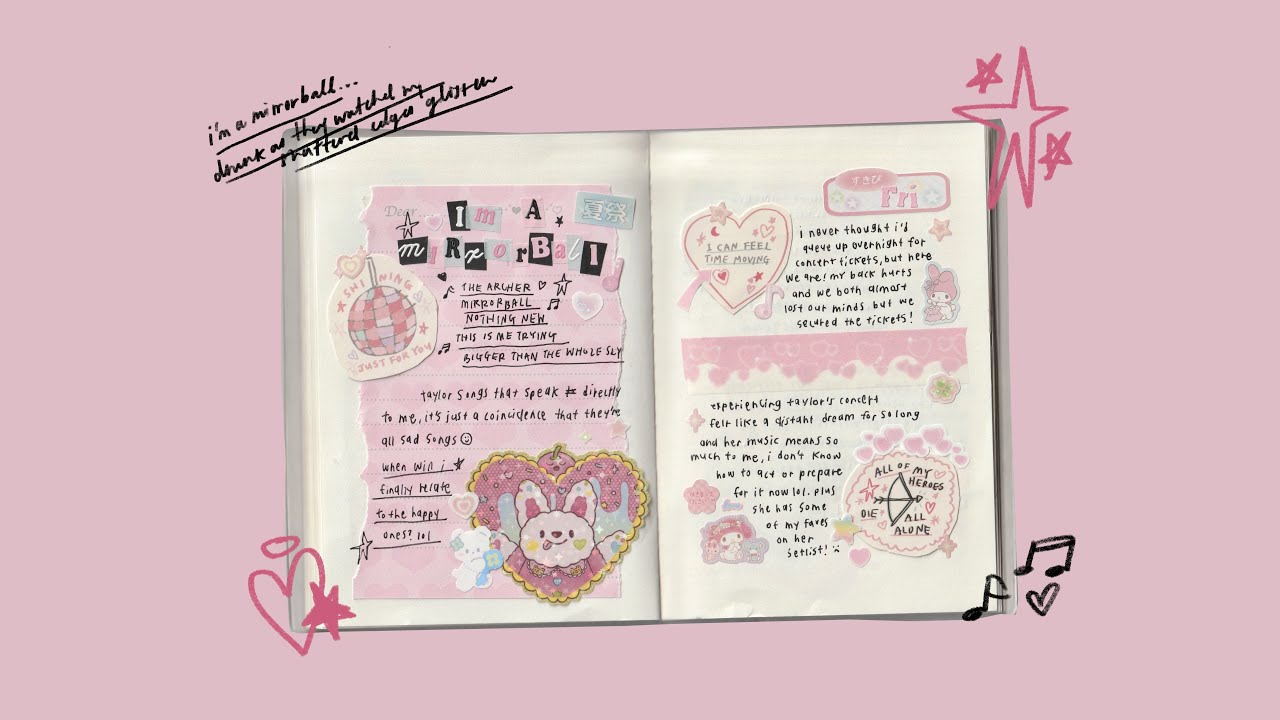 i'm a mirrorball...
drunk as they watched my
shattered edges glisten
Dear
I'm A
miRrorBall
夏祭
SHINING
JUST FOR YOU
THE ARCHER
MIRRORBALL
NOTHING NEW
THIS IS ME TRYING
BIGGER THAN THE WHOLE SKY
taylor songs that speak directly
to me, it's just a coincidence that they're
all sad songs
when will i
finally relate
to the happy
ones? lol
すきぴ
Fri
I CAN FEEL
TIME MOVING
i never thought i'd
queue up overnight for
concert tickets, but here
we are! my back hurts
and we both almost
lost our minds but we
secured the tickets!
experiencing taylor's concert
felt like a distant dream for so long
and her music means so
much to me, i don't know
how to act or prepare
for it now lol. plus
she has some
of my faves
on her
setlist!
ALL OF MY
HEROES
DIE
ALL
ALONE